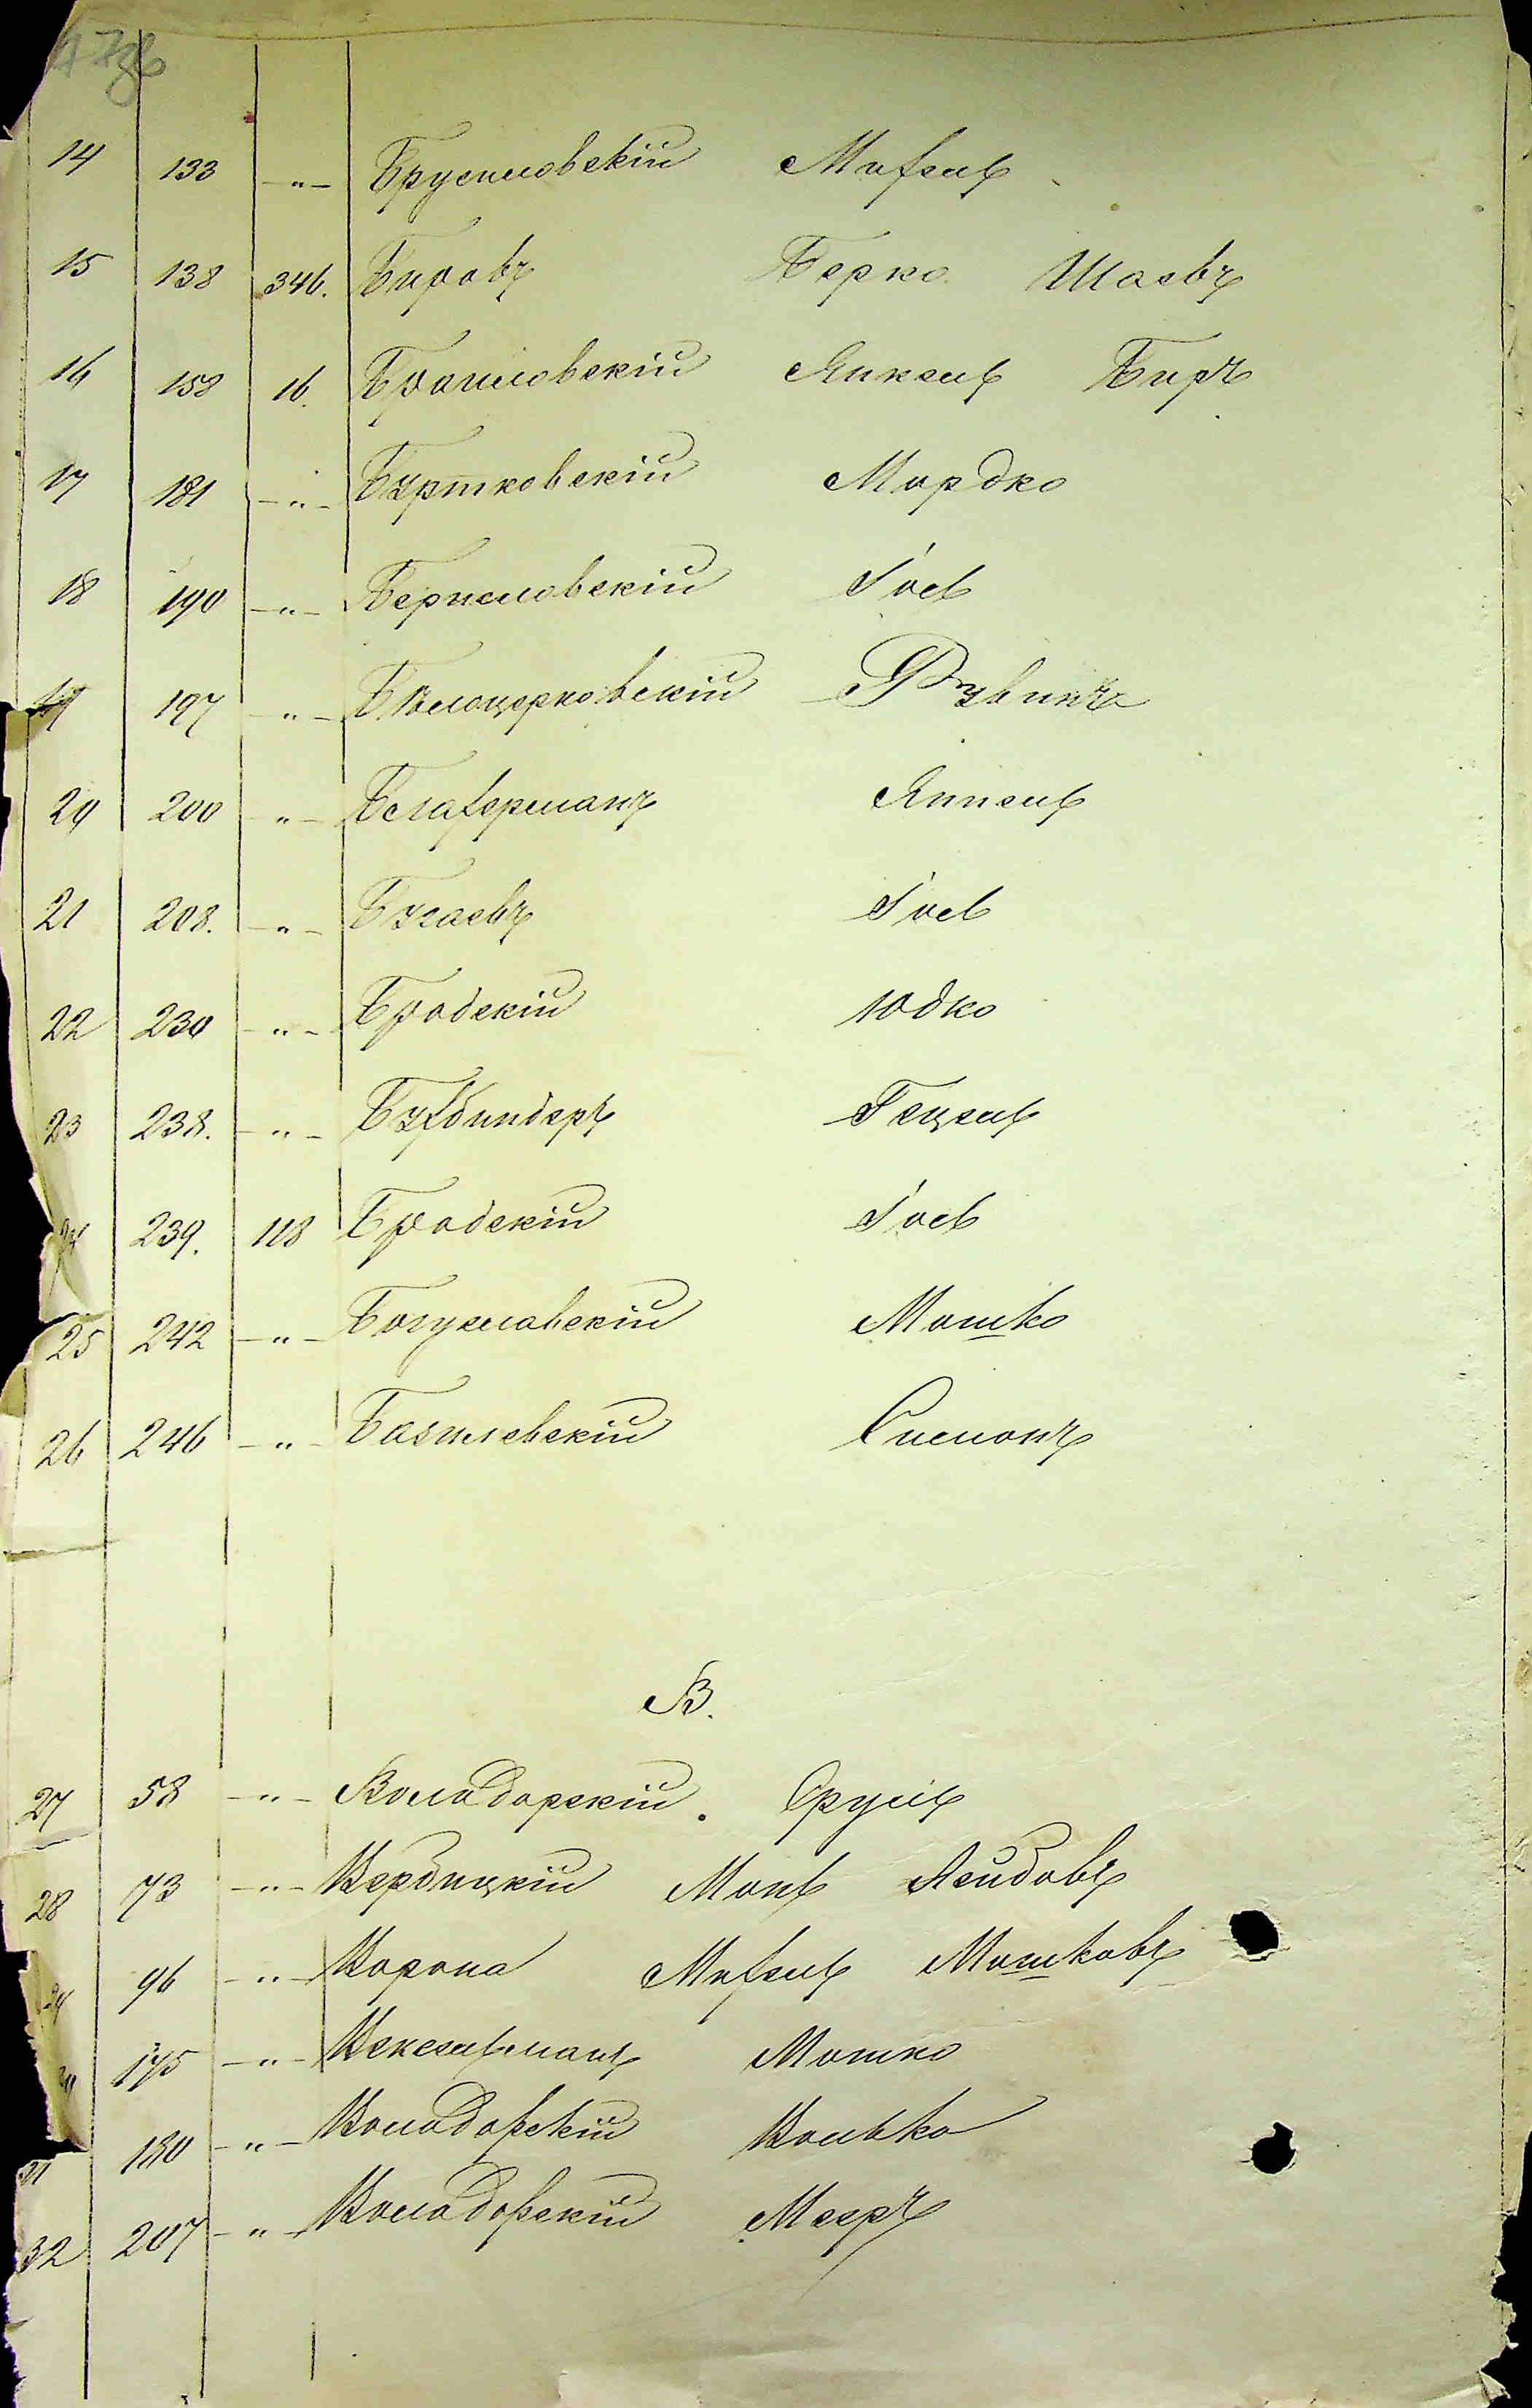 14 133 -"- Брусиловскій Михель
15 138 346. Бировъ Берко Шаевъ
16 158 16. Браиловскій Янкель Биръ
17 181 -"- Буртковскій Мордко
18 190 -"- Бершловскій Іось
19 197 -"- Бѣлоцерковскій Рувинъ
20 200 -"- Белаферманъ Янкель
21 208. -"- Бугаевъ Іось
22 230 -"- Бродскій Юдко
23 238. -"- Бухбиндеръ Гецель
24 239. 118 Бродскій Іось
25 242 -"- Богуславскій Мошко
26 246 -"- Базилевскій Симонъ
В.
27 58 -"- Володарскій. Сруль
28 73 -"- Вербицкій Лейбовъ
29 96 -"- Ворона Михель Мошковъ
30 175 -"- Вексельманъ Мошко
31 180 -"- Володарскій Волько
32 207 -"- Володарскій Мееръ